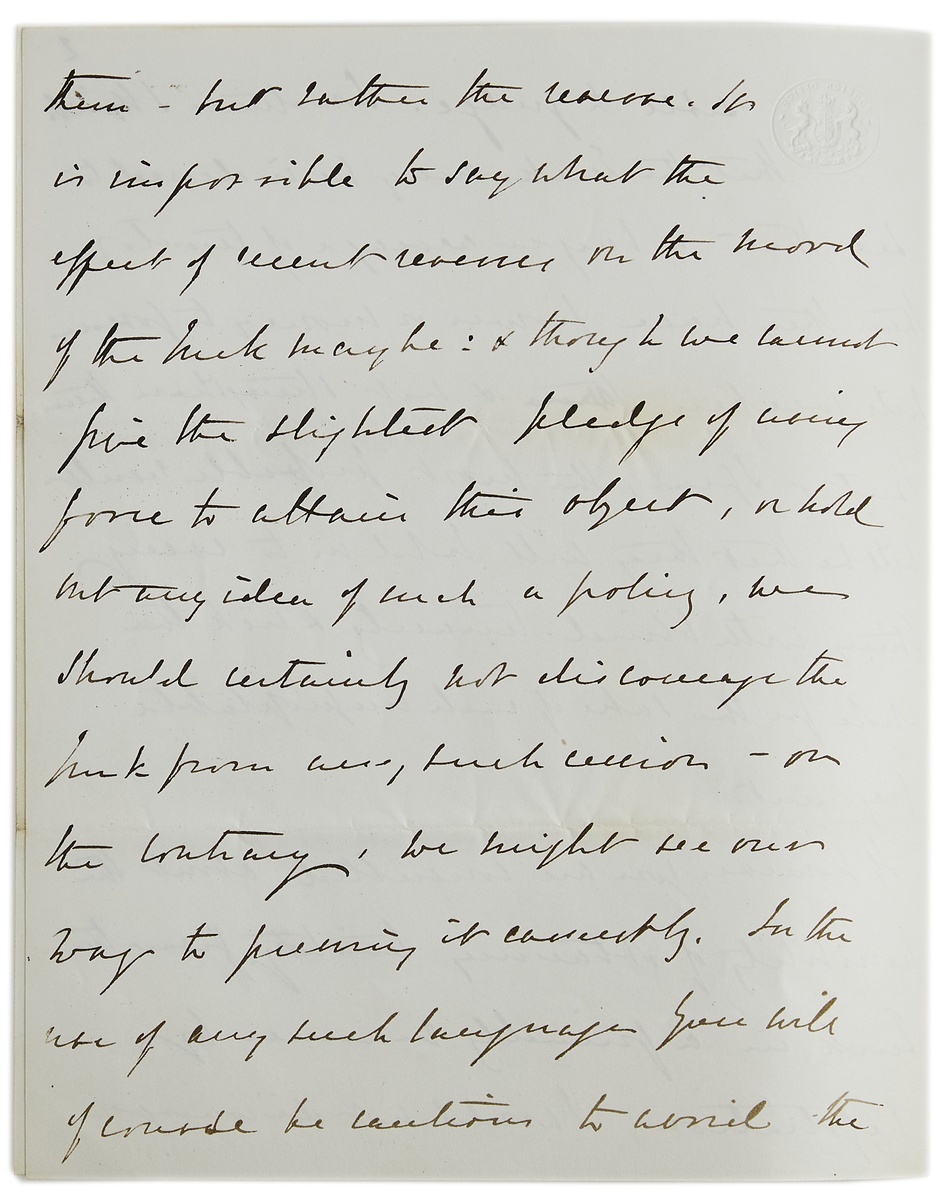 them - but rather the reverse. It
is impossible to say what the
effect of recent reverses on the moral
of the Turk may be : & though we cannot
give the slightest pledge of using
force to attain this object, or hold
out any idea of such a policy, we
should certainly not discourage the
Turk from any such cession - on
the contrary, we might see our
way to pressing it earnestly. In the
use of any such language you will
of course be cautious to avoid the